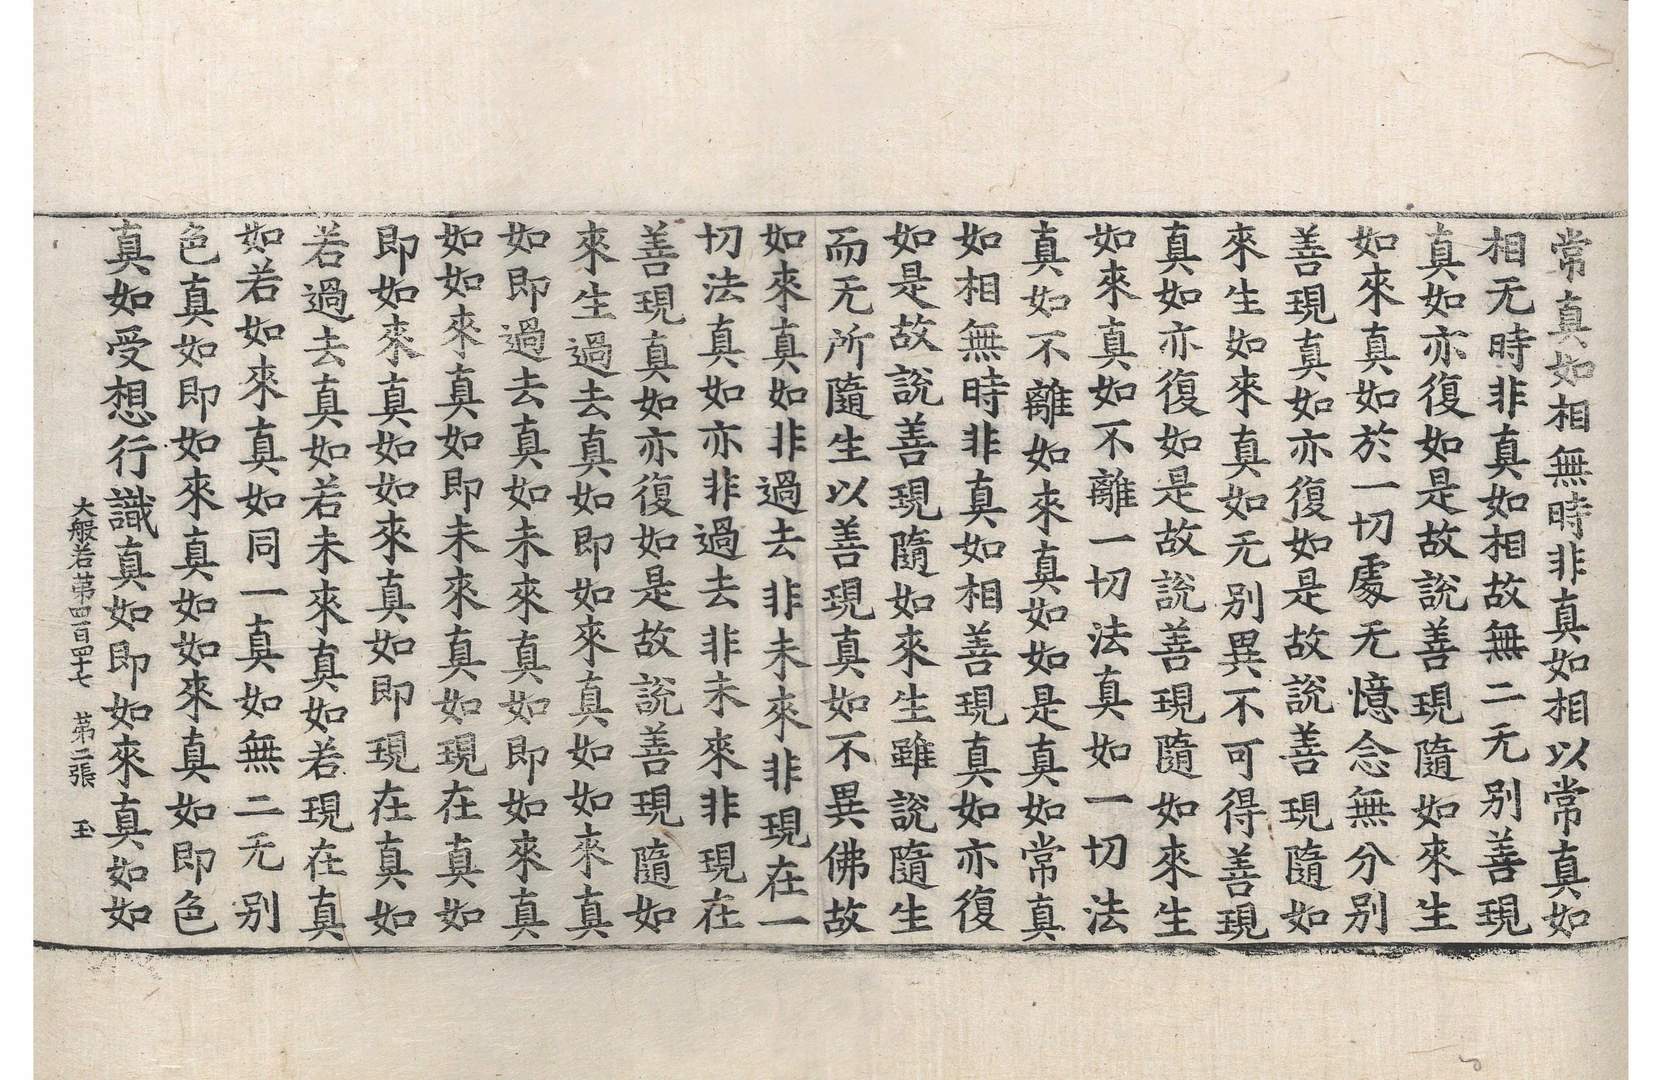 常真如相無時非真如相以常真如
相无時非真如相故無二无别善現
真如亦復如是故說善現隨如來生
如來真如於一切處无憶念無分别
善現真如亦復如是故說善現隨如
來生如來真如无别異不可得善現
真如亦復如是故說善現隨如來生
如來真如不離一切法真如一切法
真如不離如來真如如是真如常真
如相無時非真如相善現真如亦復
如是故說善現隨如來生雖說隨生
而无所隨生以善現真如不異佛故
如來真如非過去非未來非現在一
切法真如亦非過去非未來非現在
善現真如亦復如是故說善現隨如
來生過去真如即如來真如如來真
如即過去真如未來真如即如來真
如如來真如即未來真如現在真如
即如來真如如來真如即現在真如
若過去真如若未來真如若現在真
如若如來真如同一真如無二无别
色真如即如來真如如來真如即色
真如受想行識真如即如來真如如
大般若第四百四十七 第二張 玉